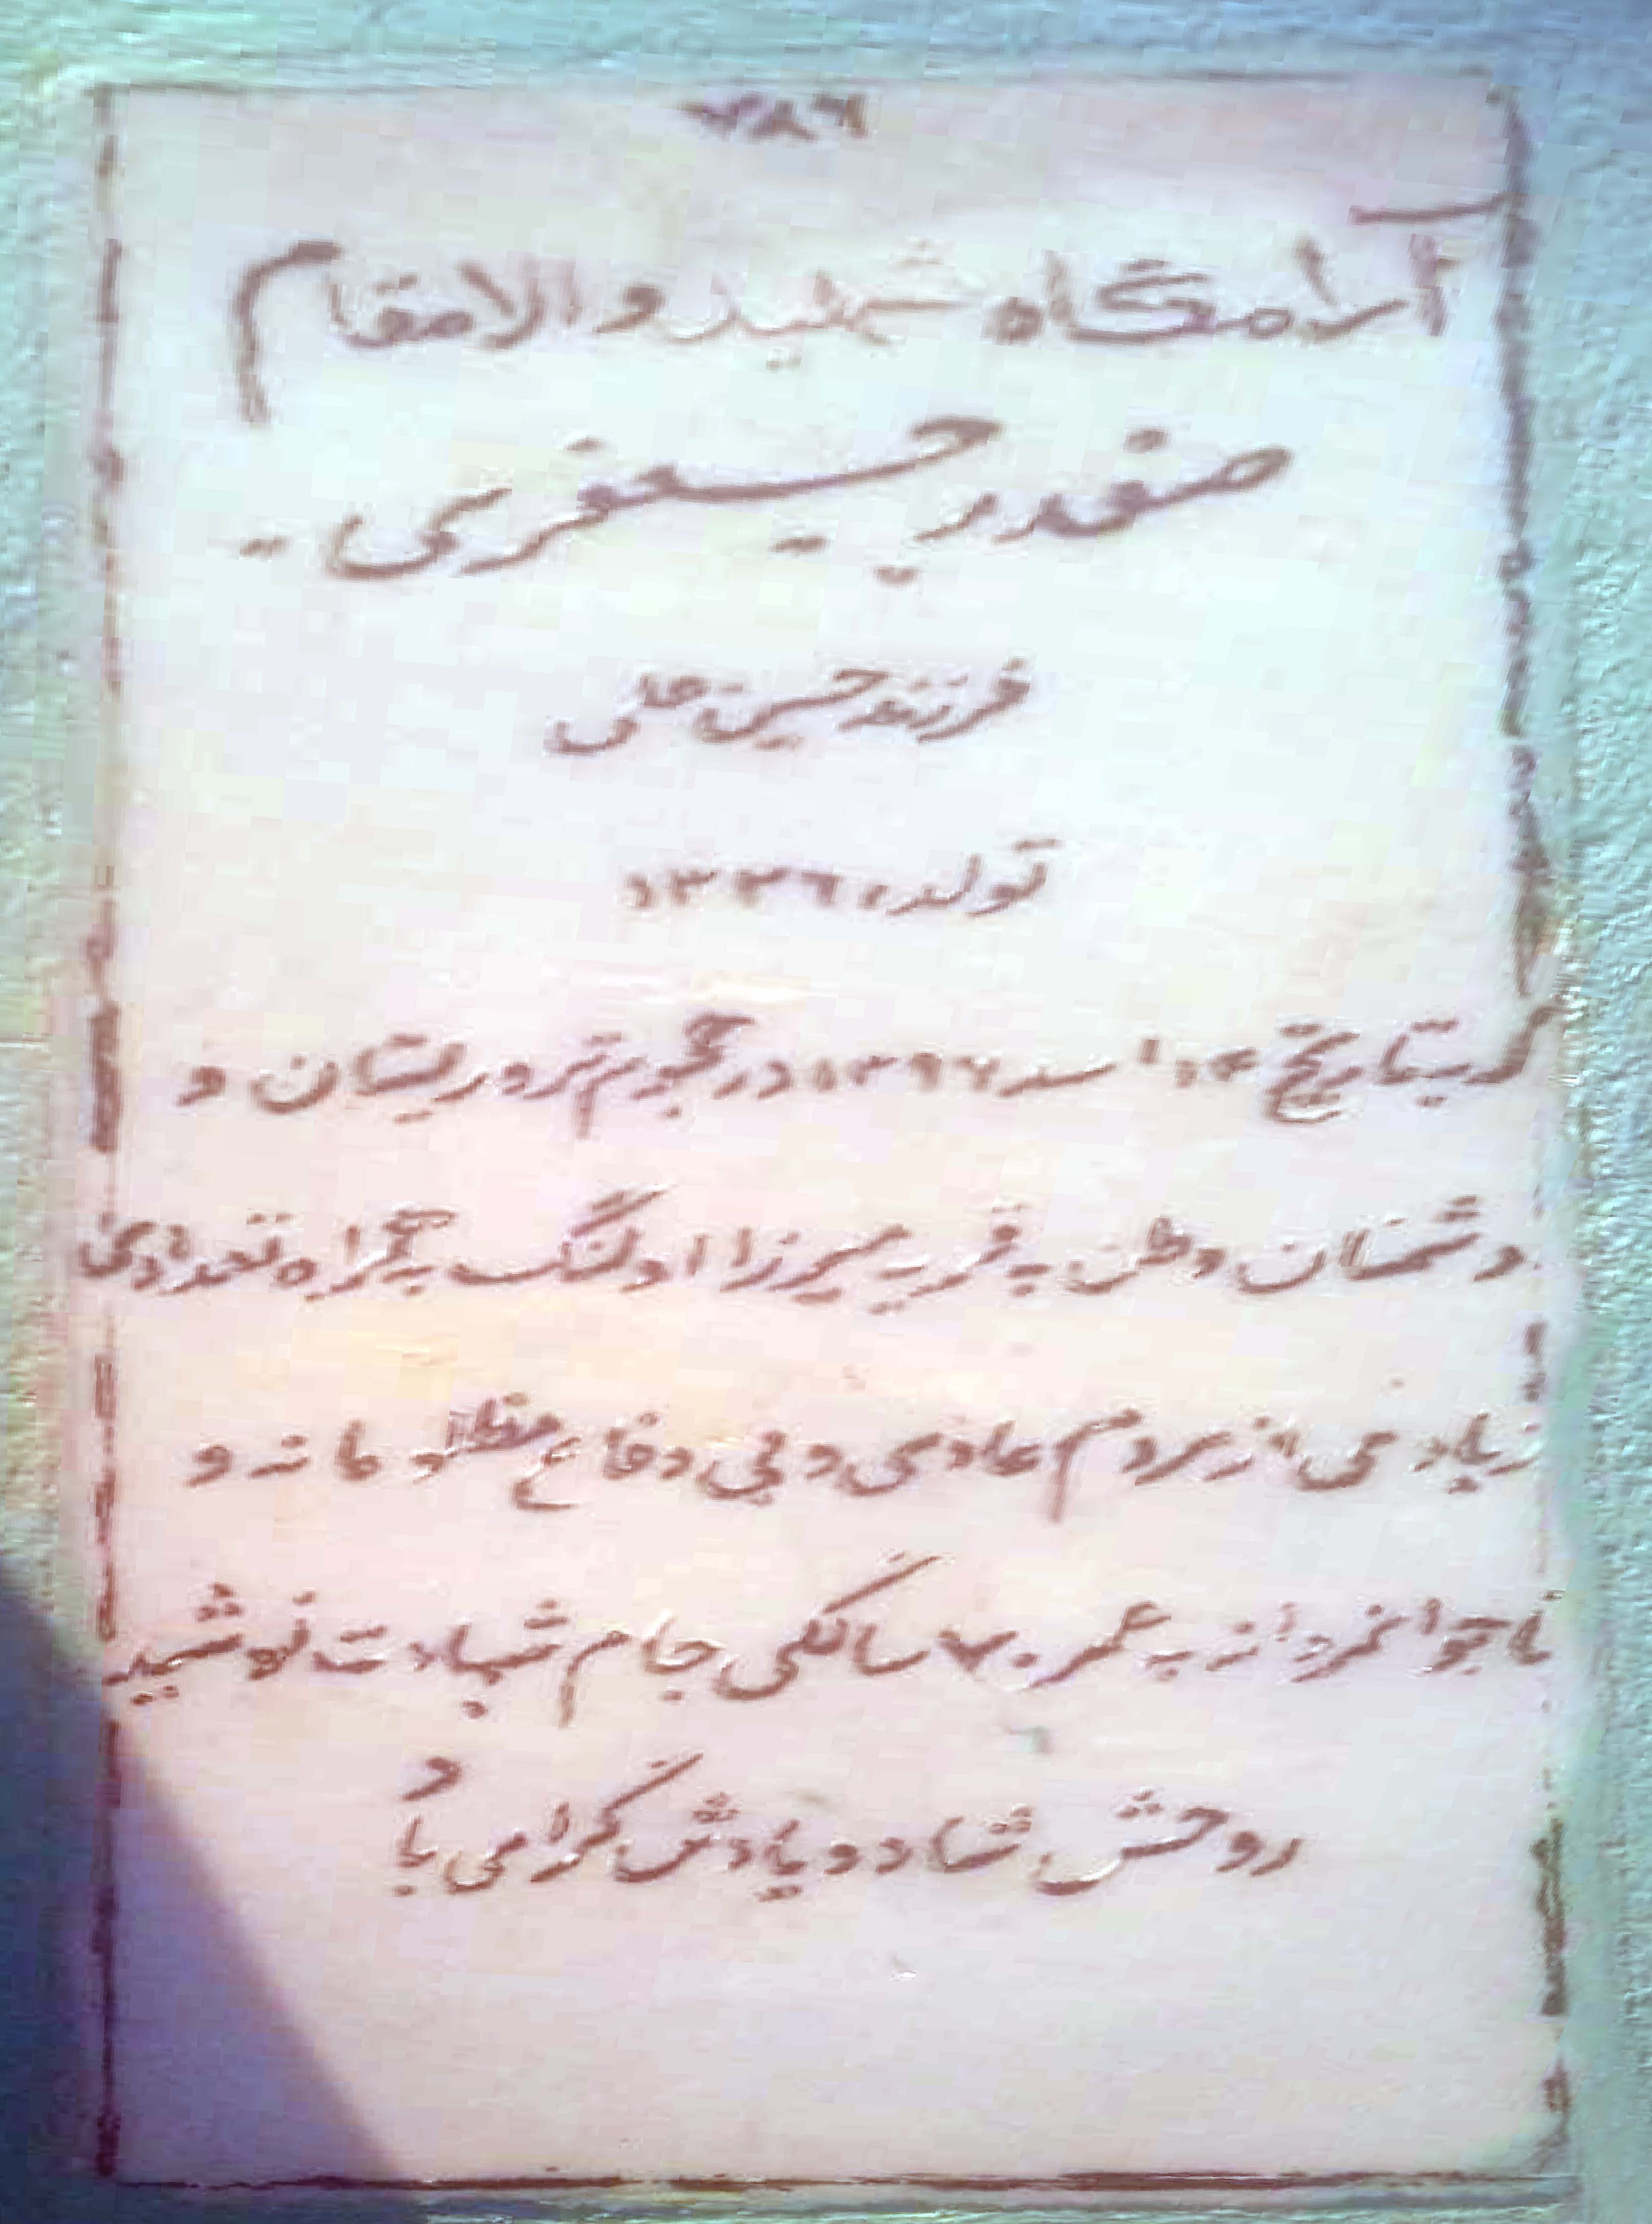 ۷۸۶
آرامگاه شهید والامقام
صفدر حیدری
فرزند حسین علی
تولد، ۱۳۲۶
که بتاریخ ۱۴ اسد ۱۳۹۶ در هجوم تروریستان و
دشمنان وطن به قریه میرزا اولنگ به همراه تعدادی
زیادی از مردم عادی و بی دفاع مظلومانه و
ناجوانمردانه به عمر ۷۰ سالگی جام شهادت نوشید
روحش شاد و یادش گرامی باد